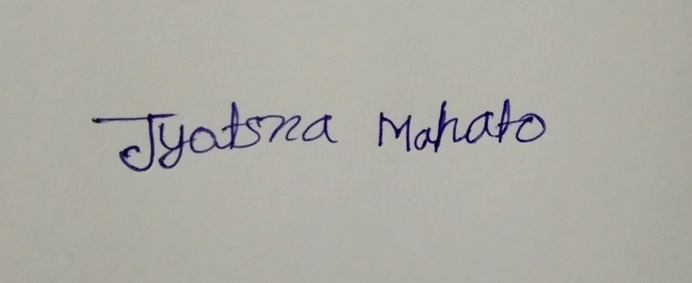 Jyotsna Mahato